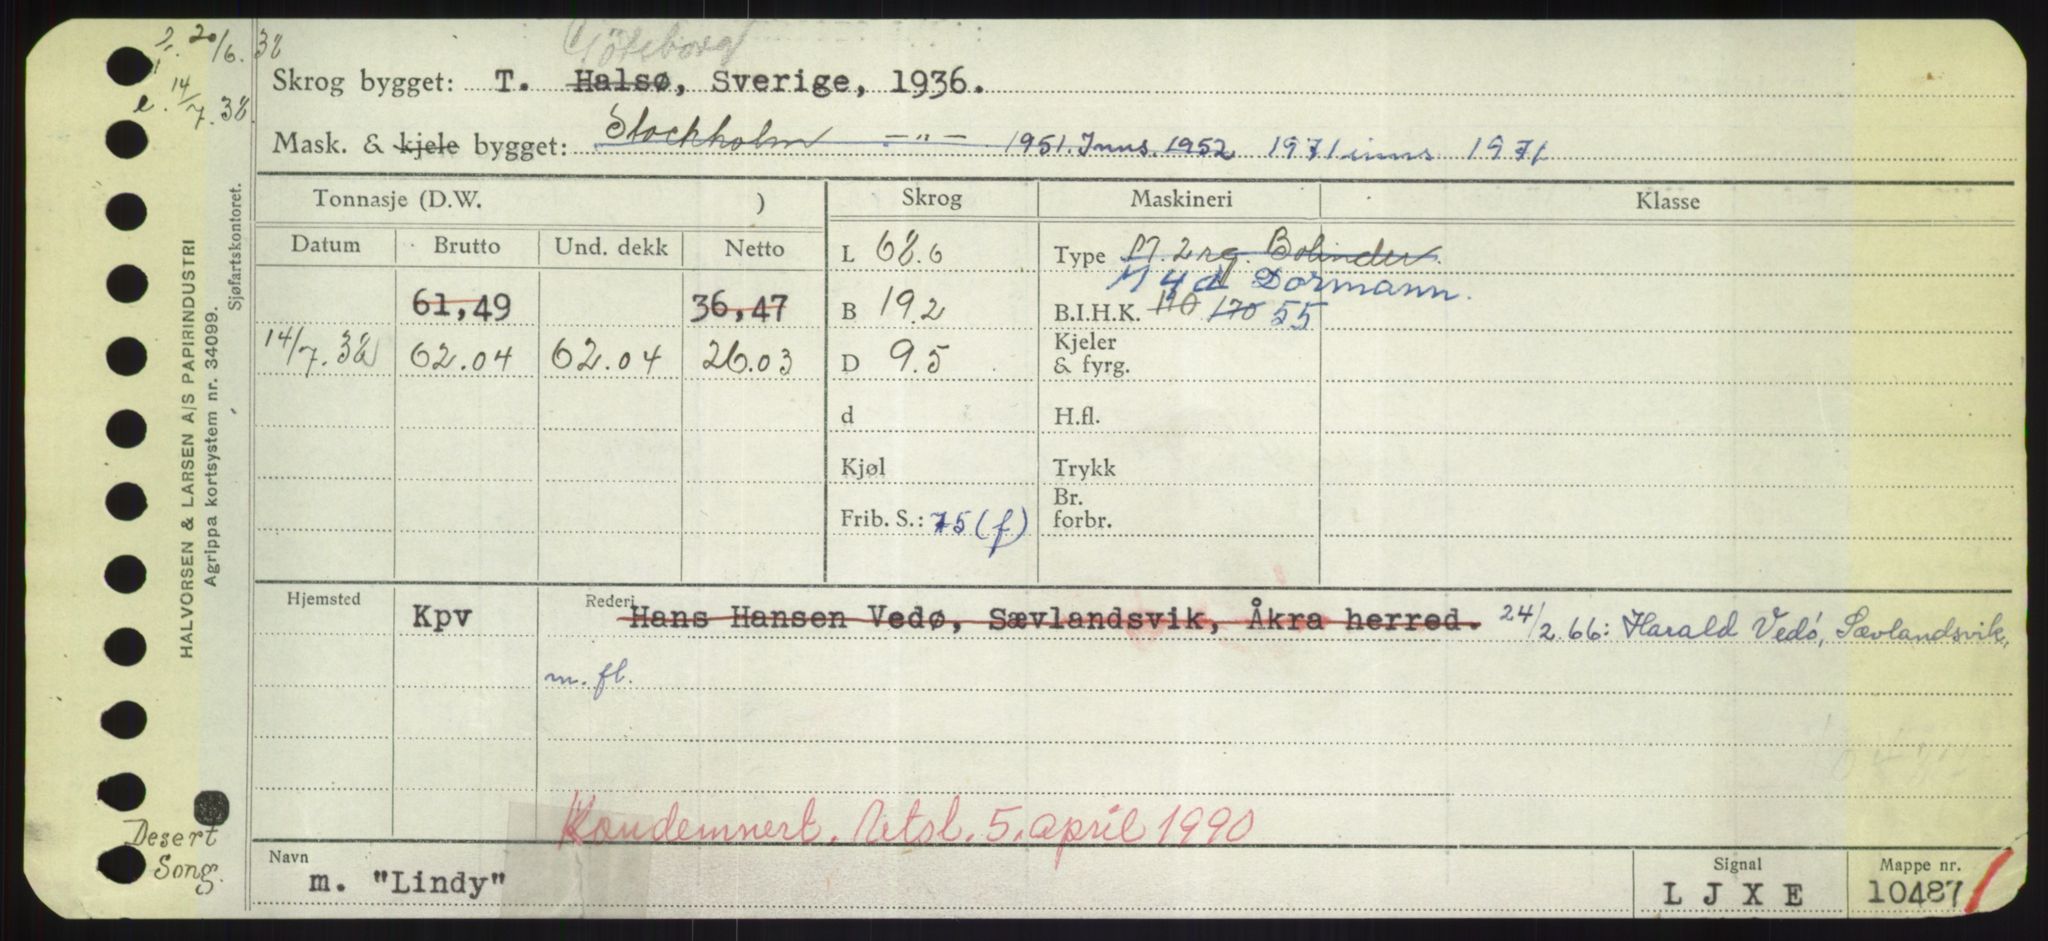 20/6.38
Göteborg
Skrog bygget: T. Halsø, Sverige, 1936.
e. 14/7.38.
Mask. & kjele bygget: Stockholm —"— 1951. Inns. 1952 1971 inns 1971
Tonnasje (D.W. ) Skrog Maskineri Klasse
Datum Brutto Und. dekk Netto L 68.6 Type M. 2 rg. Bolinder.
Dormann.
61,49 36,47 B 19.2 B.I.H.K. 110 170 55
14/7.38 62.04 62.04 26.03 D 9.5 Kjeler & fyrg.
d H.fl.
Kjøl Trykk
Frib. S.: 75 (f) Br. forbr.
Hjemsted Rederi
Kpv Hans Hansen Vedø, Sævlandsvik, Åkra herred. 24/2 66: Harald Vedø, Sævlandsvik,
m. fl.
Kondemnert. Utsl. 5. april 1990
Navn Signal Mappe nr.
m. "Lindy" L J X E 10487
Desert
Song.
HALVORSEN & LARSEN A/S PAPIRINDUSTRI
Agrippa kortsystem nr. 34099.
Sjøfartskontoret.